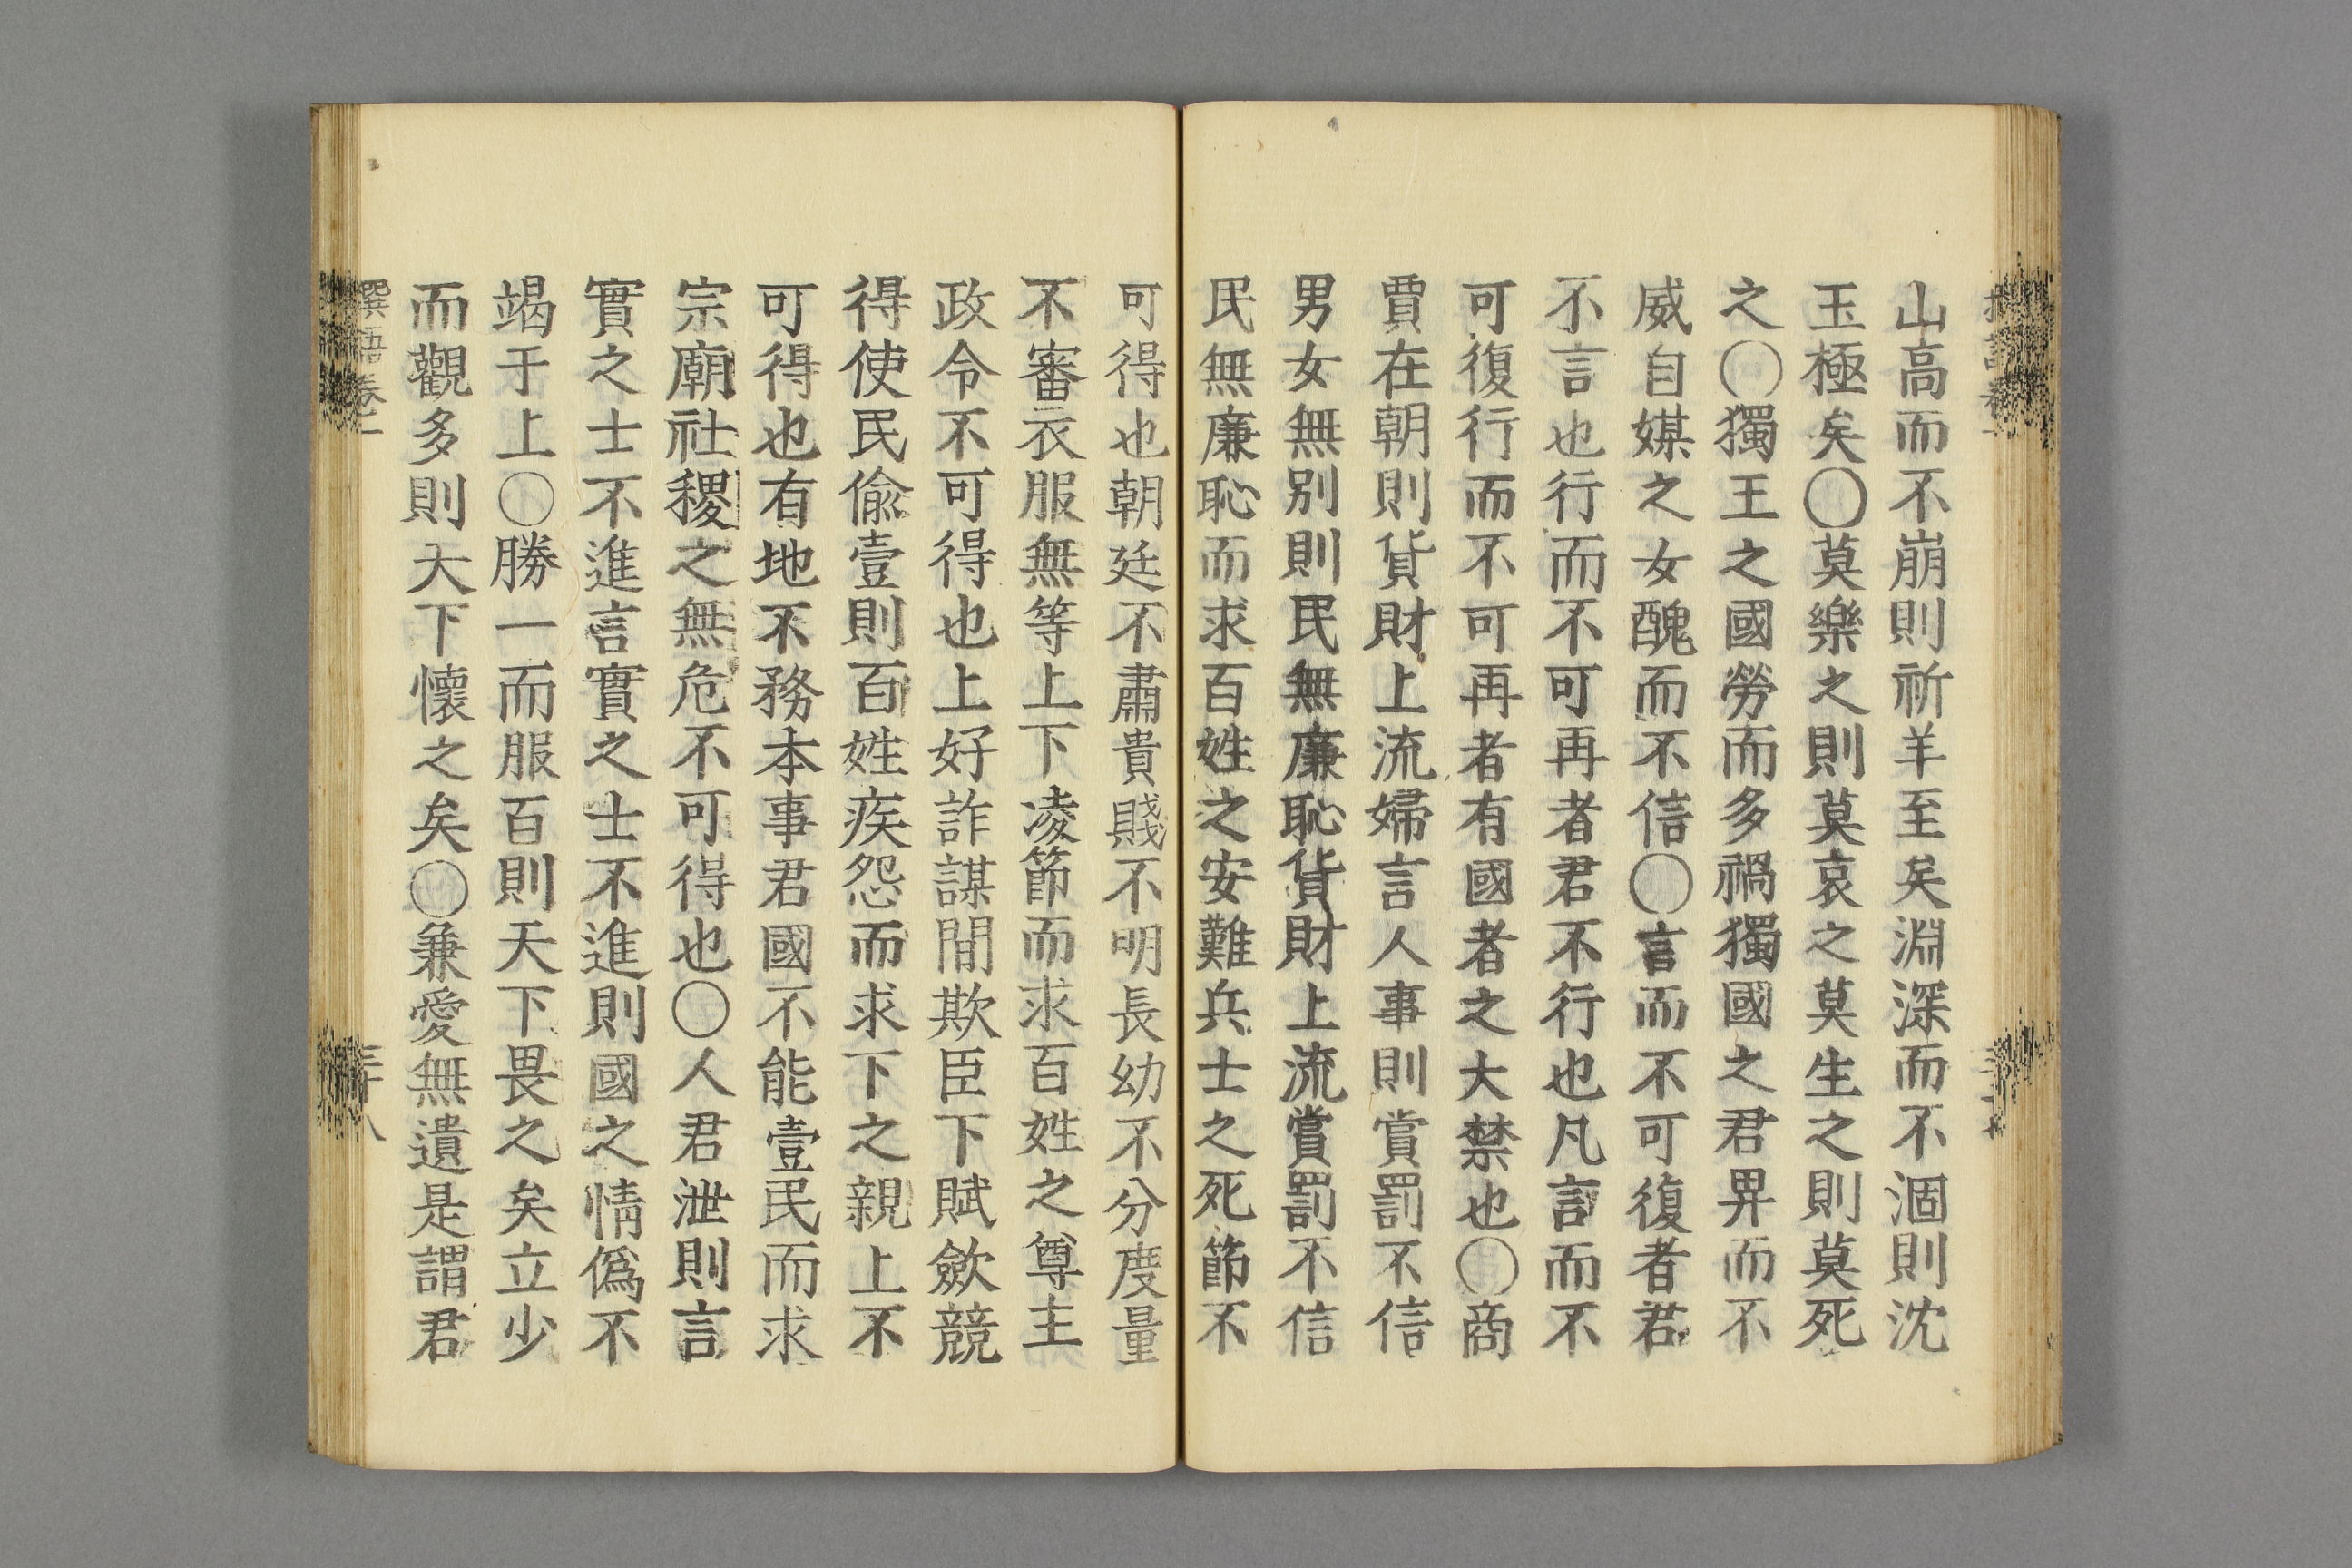 山高而不崩則祈羊至矣淵深而不涸則沈
玉極矣〇莫樂之則莫哀之莫生之則莫死
之〇獨王之國勞而多禍獨國之君畀而不
威自媒之女醜而不信〇言而不可復者君
不言也行而不可再者君不行也凡言而不
可復行而不可再者有國者之大禁也〇商
賈在朝則貨財上流婦言人事則賞罰不信
男女無別則民無廉恥貨財上流賞罰不信
民無廉恥而求百姓之安難兵士之死節不
可得也朝廷不肅貴賤不明長幼不分度量
不審衣服無等上下凌節而求百姓之尊主
政令不可得也上好詐謀間欺臣下賦斂競
得使民偷壹則百姓疾怨而求下之親上不
可得也有地不務本事君國不能壹民而求
宗廟社稷之無危不可得也〇人君泄則言
實之士不進言實之士不進則國之情僞不
竭于上〇勝一而服百則天下畏之矣立少
而觀多則天下懷之矣〇兼愛無遺是謂君
撰語卷一
三十八